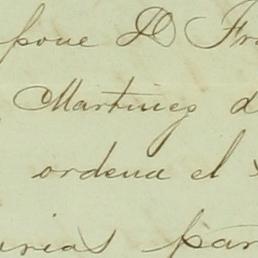 pone D Fr
Martinez d
ordena el
rias par